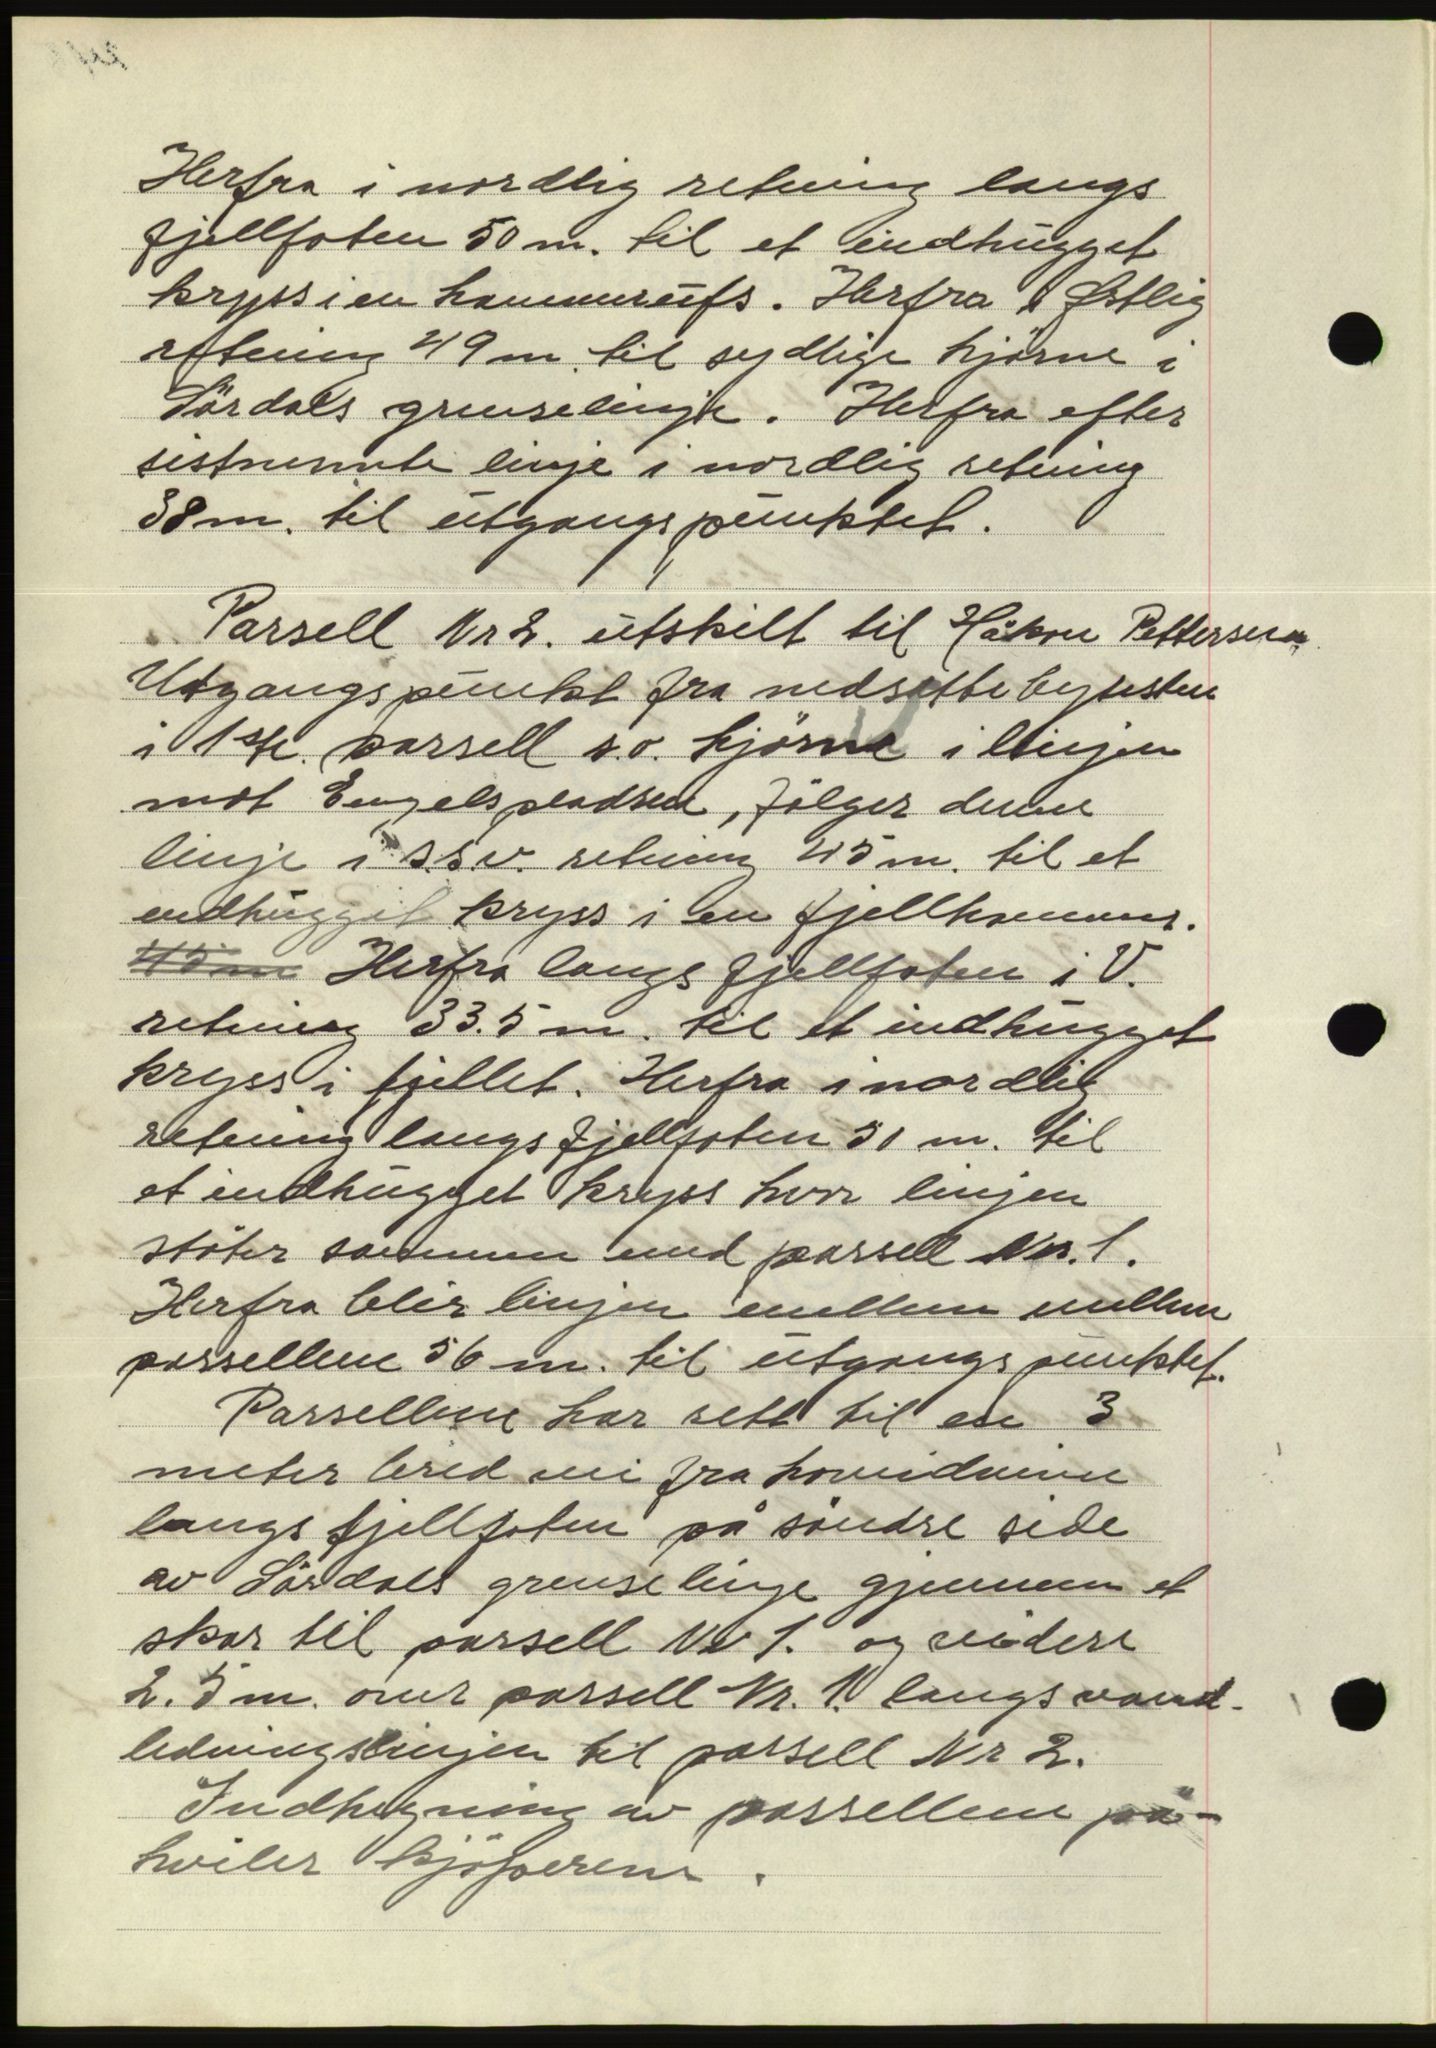 Herfra i nordlig retning langs
fjellfoten 50 m. til et indhugget
kryss i en hammerufs. Herfra i Østlig
retning 49 m. til sydlige hjörne i
Lördals grenselinje. Herfra efter
sistnevnte linje i nordlig retning
38 m. til utgangspunktet.
Parsell Nr 2. utskilt til Håkon Pettersen.
Utgangspunkt fra nedsatte bytesten
i 1ste. parsell s.o. hjörne i linjen
mot Engelspladsen, fölger denne
linje i s.s.v. retning 45 m. til et
indhugget kryss i en fjellhammer.
45 m Herfra langs fjellfoten i V.
retning 33.5 m. til et indhugget
kryss i fjellet. Herfra i nordlig
retning langs fjellfoten 50 m. til
et indhugget kryss hvor linjen
stöter sammen med parsell Nr. 1.
Herfra blir linjen mellem mellem
parsellene 56 m. til utgangspunktet.
Parsellene har rett til en 3
meter bred vei fra hoveidveien
langs fjellfoten på söndre side
av Lördals grenselinje gjennem et
skar til parsell Nr 1. og videre
2.5 m. over parsell Nr. 1. langs vand-
ledningslinjen til parsell Nr 2.
Indhegning av parsellene på-
hviler kjöperene.